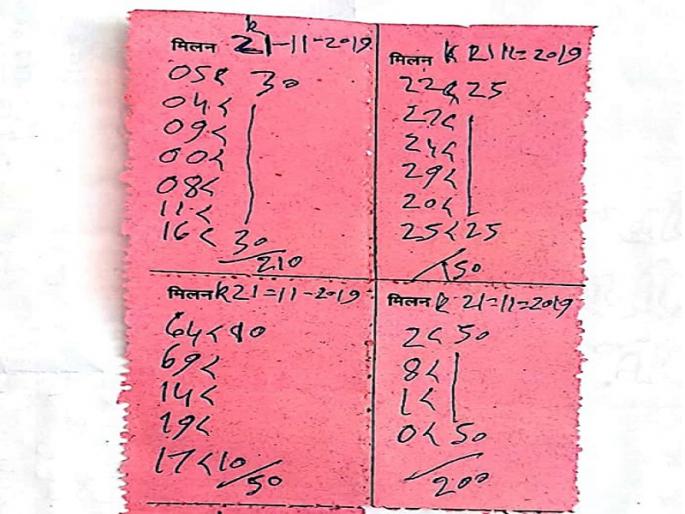 k
मिलन 21-11-2019
05< 30
04<
09<
00<
08<
11<
16< 30
210
मिलन K 21 11=2019
22< 25
27<
24<
29<
20<
25<25
150
मिलन K 21=11-2019
64<10
69<
14<
19<
17<10
50
मिलन K 21=11=2019
2< 50
8<
1<
0< 50
200